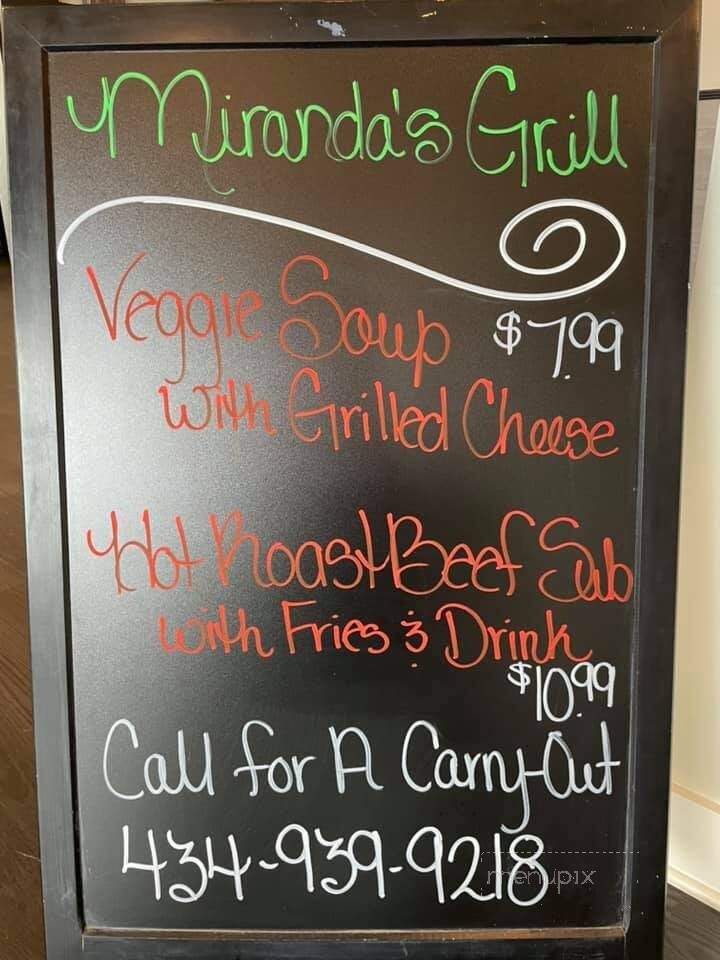 Miranda's Grill
Veggie Soup $7.99
with Grilled Cheese
Hot Roast Beef Sub
with Fries & Drink
$10.99
Call for A Carry-Out
434-939-9218
menupix